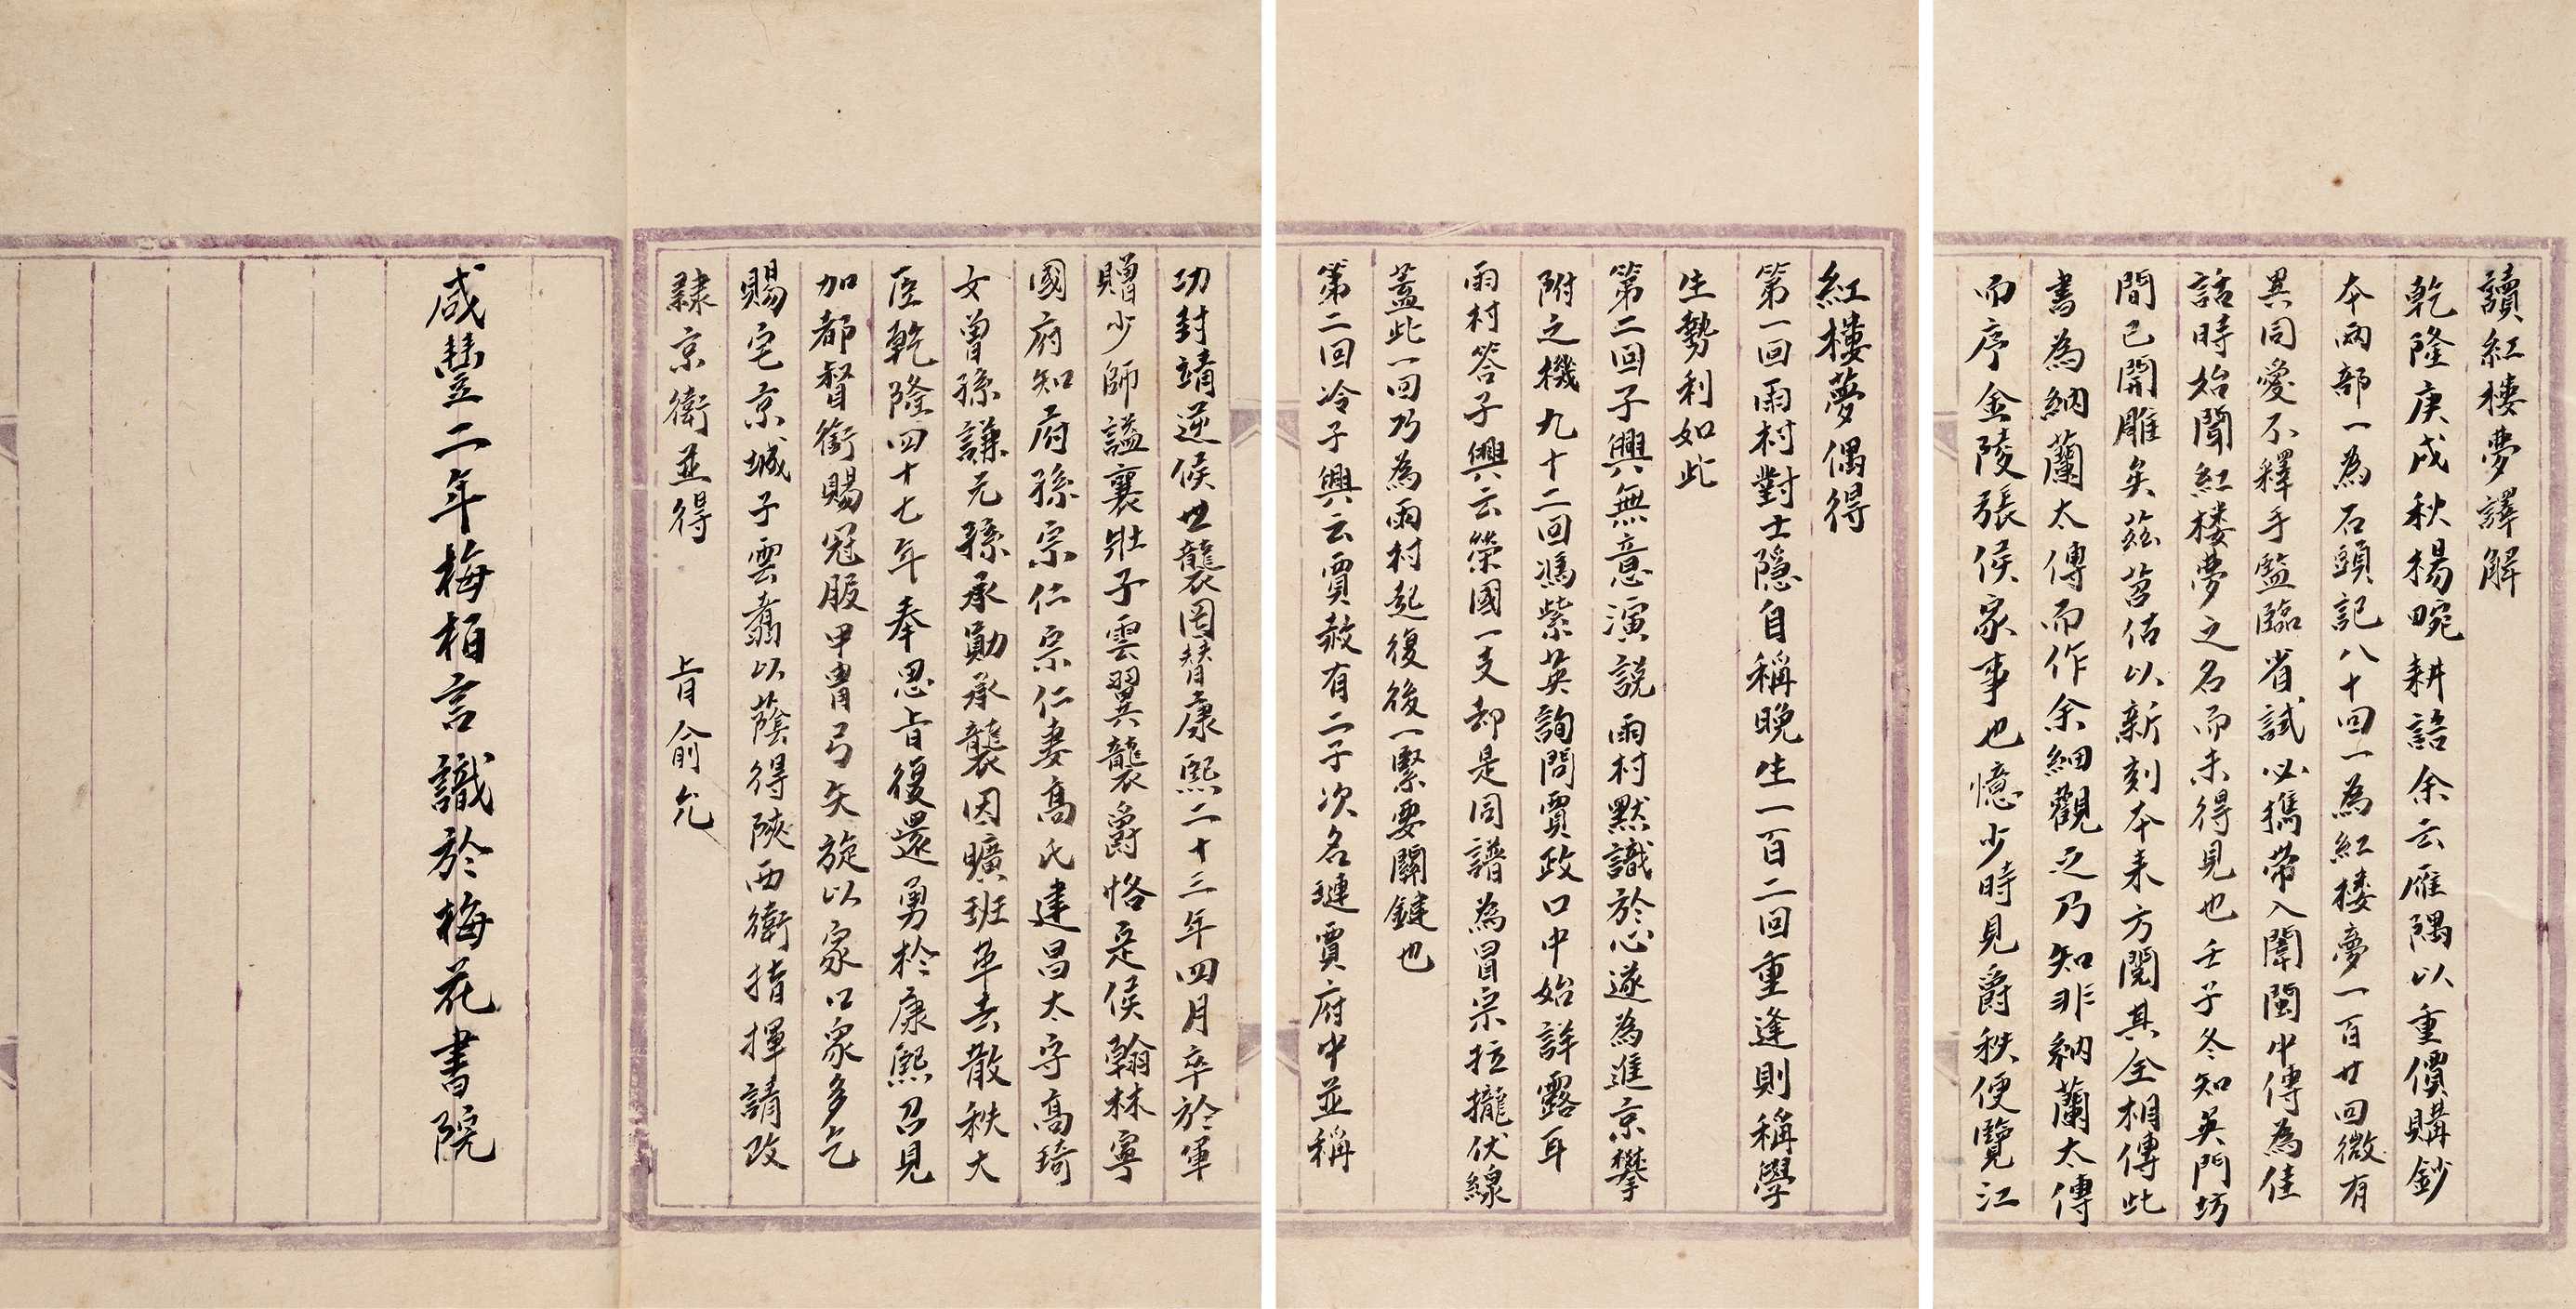 讀紅樓夢譯解
乾隆庚戌秋楊畹耕語余云雁隅以重價購鈔
本兩部一為石頭記八十回一為紅樓夢一百廿回微有
異同愛不釋手監臨省試必攜帶入闈閩中傳為佳
話時始聞紅樓夢之名而未得見也壬子冬知吳門坊
間已開雕矣茲苕估以新刻本來方閱其全相傳此
書為納蘭太傅而作余細觀之乃知非納蘭太傅
而序金陵張侯家事也憶少時見爵秩便覽江
紅樓夢偶得
第一回雨村對士隱自稱晚生一百二回重逢則稱學
生勢利如此
第二回子興無意演說雨村默識於心遂為進京攀
附之機九十二回馮紫英詢問賈政口中始詳露耳
雨村答子興云榮國一支却是同譜為冒宗拉攏伏線
蓋此一回乃為雨村起復後一緊要關鍵也
第二回冷子興云賈赦有二子次名璉賈府中並稱
功封靖逆侯世襲罔替康熙二十三年四月卒於軍
贈少師謚襄壯子雲翼襲爵恪定侯翰林寧
國府知府孫宗仁宗仁妻高氏建昌太守高琦
女曾孫謙元孫承勛承襲因曠班革去散秩大
臣乾隆四十七年奉恩旨復還勇於康熙召見
加都督銜賜冠服甲冑弓矢旋以家口眾多乞
賜宅京城子雲翥以蔭得陝西衛指揮請改
隸京衛並得 旨俞允
咸豐二年梅栢言識於梅花書院